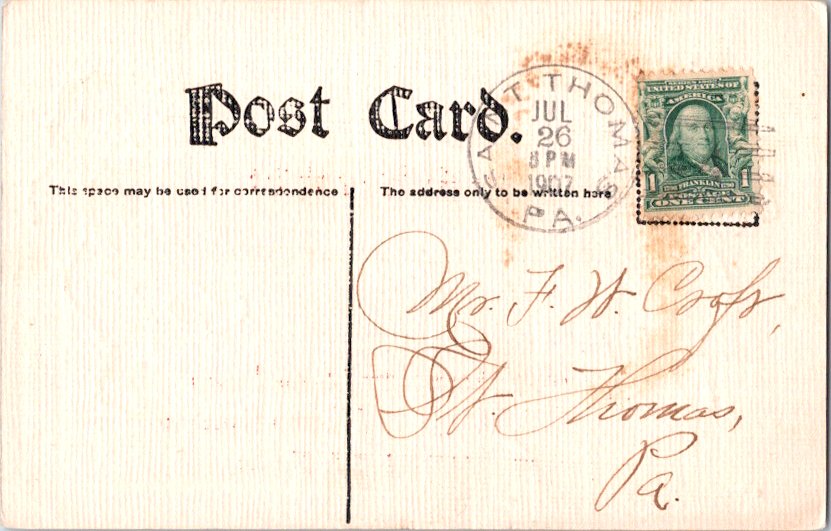 Post Card.
SAINT THOMAS
JUL
26
8 PM
1907
PA.
SERIES 1902
UNITED STATES OF
AMERICA
1 FRANKLIN 1
ONE CENT
This space may be used for correspondence
The address only to be written here
Mr. F. W. Croft,
St. Thomas,
Pa.